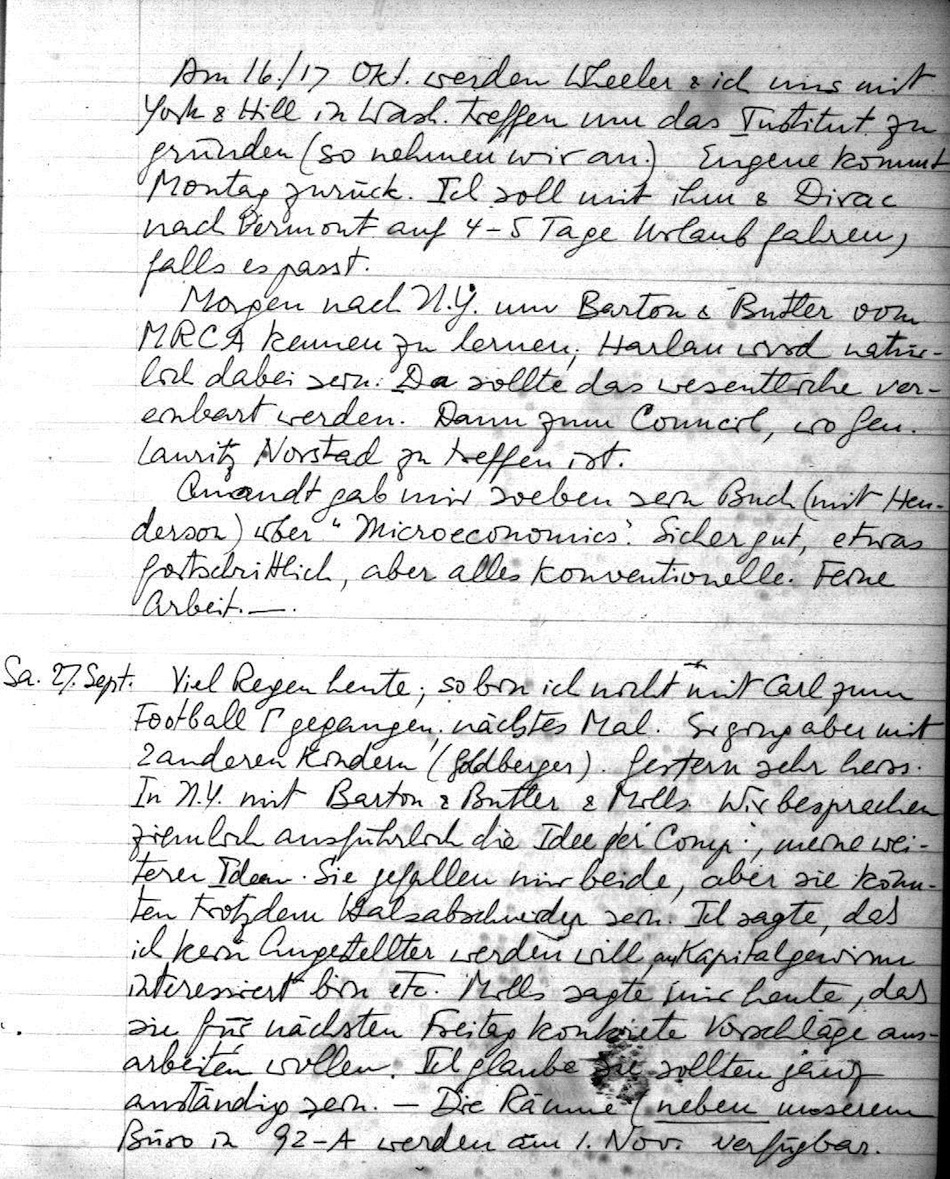 Am 16./17 Okt. werden Wheeler & ich uns mit
York & Hill in Wash. treffen um das Institut zu
gründen (so nehmen wir an.) Eugene kommt
Montag zurück. Ich soll mit ihm & Dirac
nach Vermont auf 4-5 Tage Urlaub fahren,
falls es passt.
Morgen nach N.Y. um Barton & Butler vom
MRCA kennen zu lernen; Harlan wird natür-
lich dabei sein. Da sollte das wesentliche ver-
einbart werden. Dann zum Council, wo Gen.
Lauritz Norstad zu treffen ist.
Quandt gab mir soeben sein Buch (mit Hen-
derson) über "Microeconomics". Sicher gut, etwas
fortschrittlich, aber alles konventionelle. Feine
Arbeit. —.
Sa. 27. Sept. Viel Regen heute; so bin ich nicht mit Carl zum
Football gegangen; nächstes Mal. Er ging aber mit
2 anderen Kindern (Goldberger). Gestern sehr heiss.
In N.Y. mit Barton & Butler & Mills. Wir besprachen
ziemlich ausführlich die Idee der Comp.; meine wei-
teren Ideen. Sie gefallen mir beide, aber sie könn-
ten trotzdem Halsabschneider sein. Ich sagte, das
ich kein Angestellter werden will, an Kapitalgewinn
interessiert bin etc. Mills sagte mir heute, das
sie für nächsten Freitag konkrete Vorschläge aus-
arbeiten wollen. Ich glaube sie sollten ganz
anständig sein. — Die Räume (neben unserem
Büro in 92-A werden am 1. Nov. verfügbar.